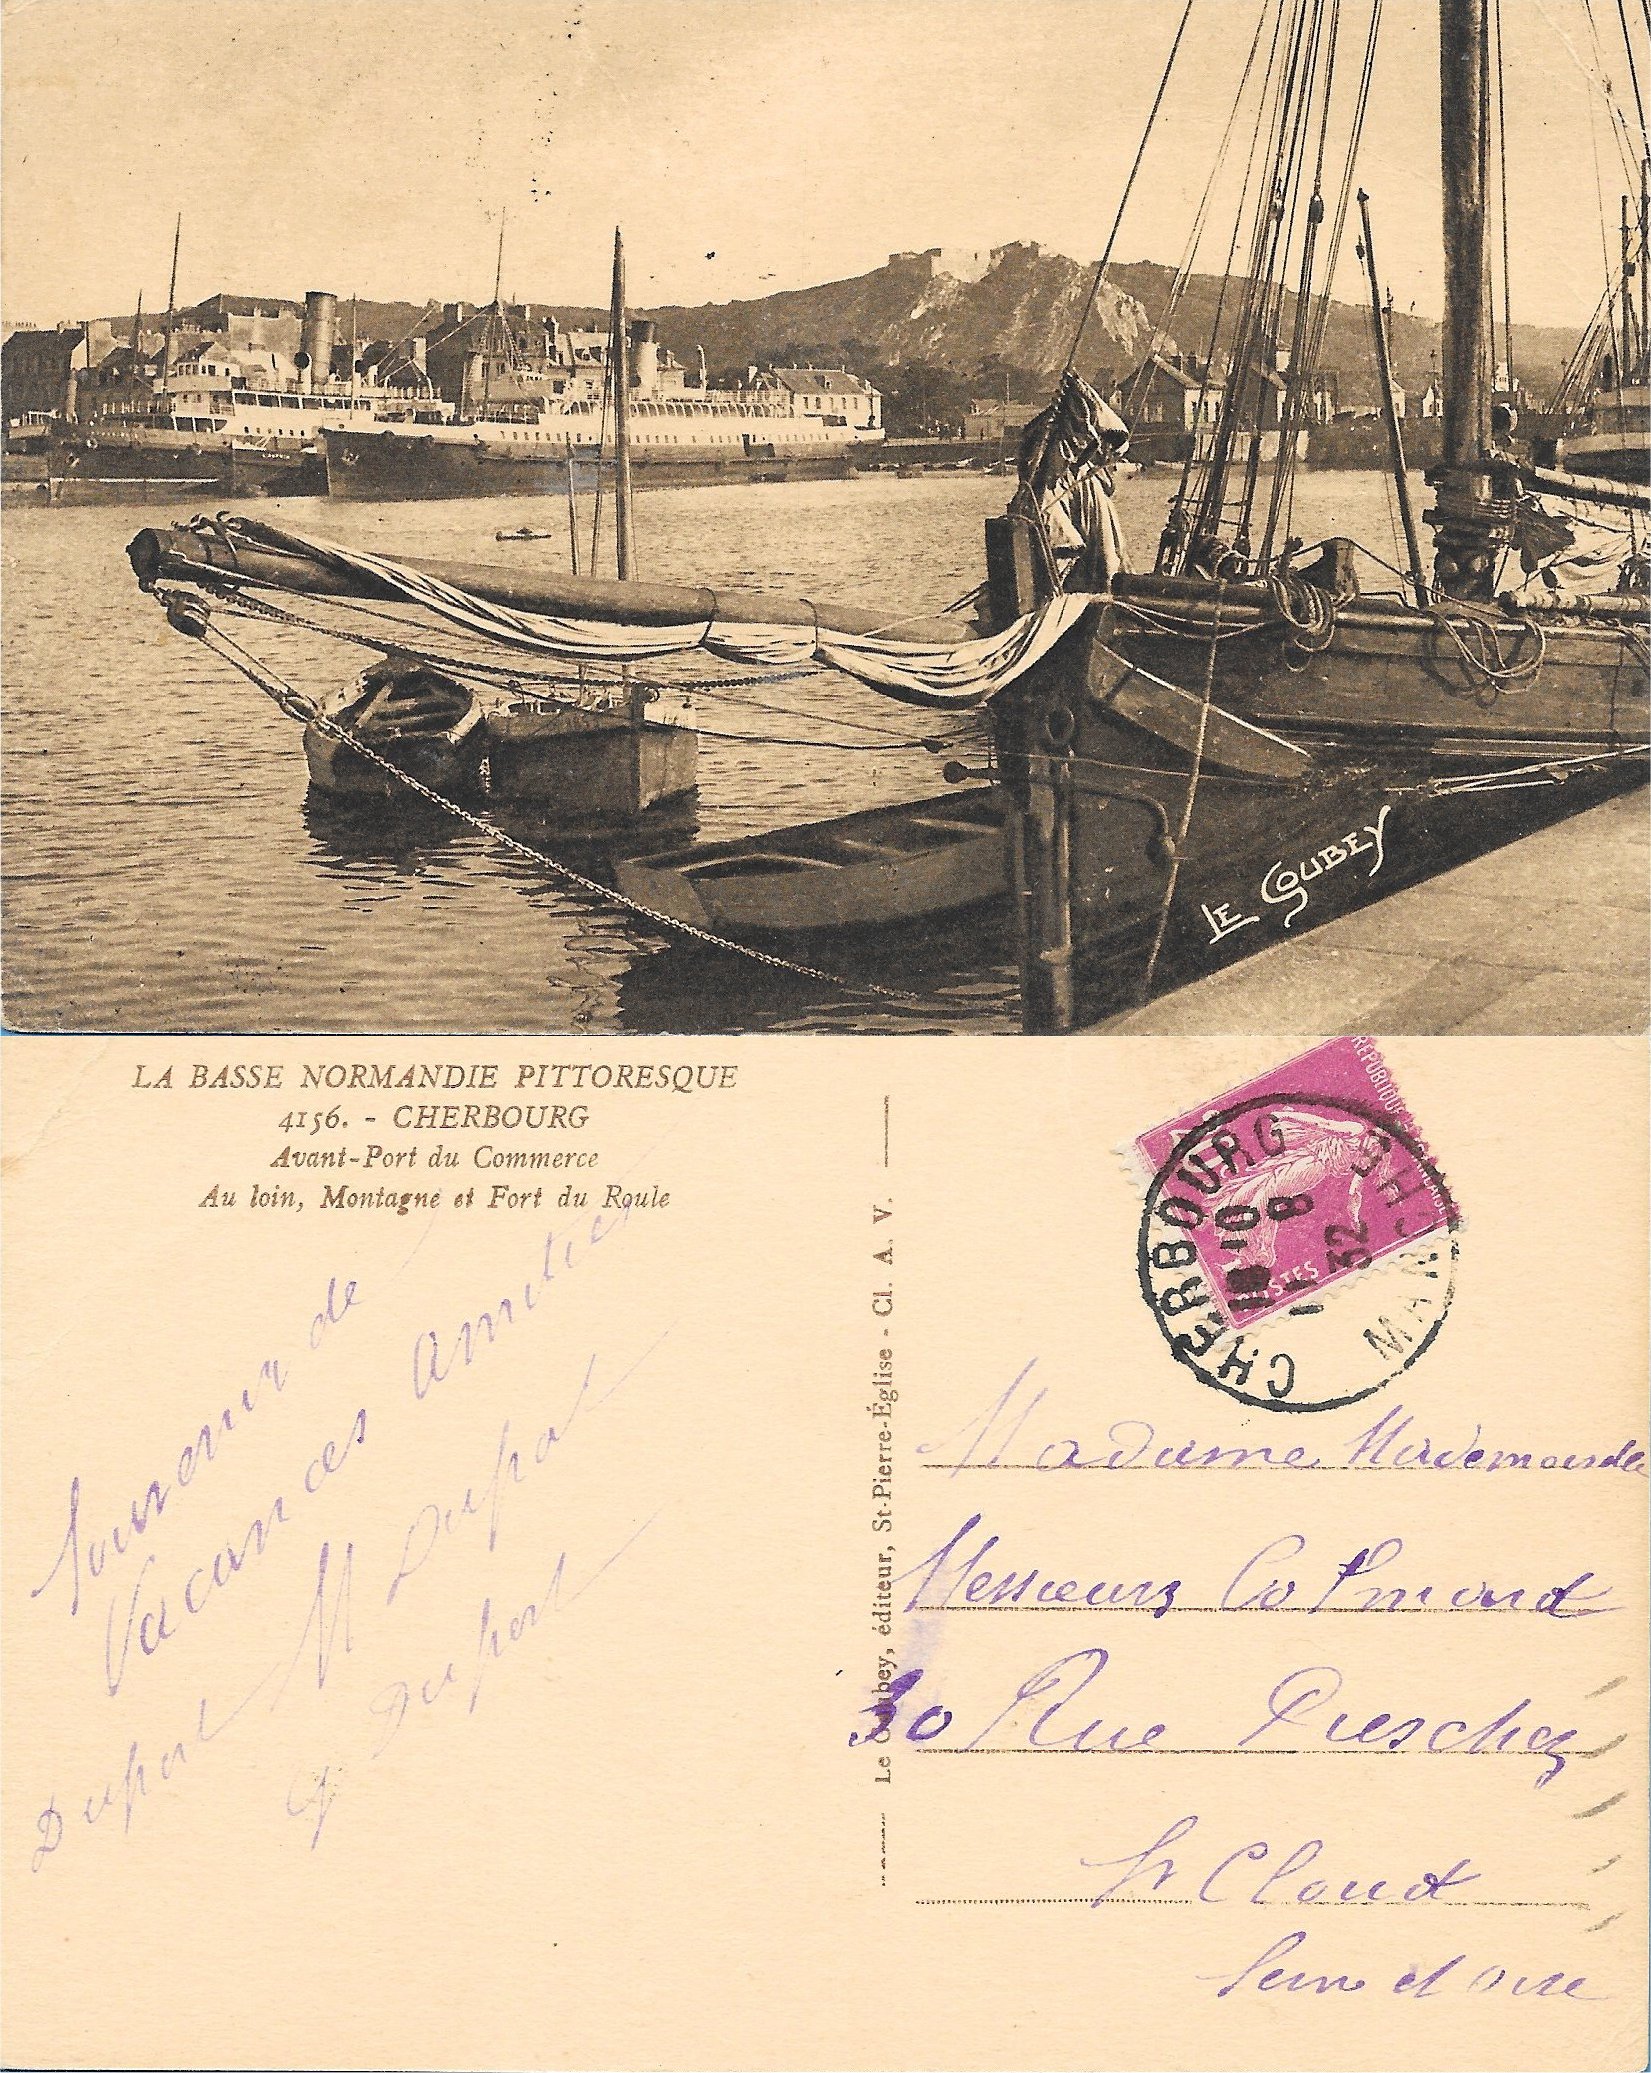 LE GOUBEY
LA BASSE NORMANDIE PITTORESQUE
4156. - CHERBOURG
Avant-Port du Commerce
Au loin, Montagne et Fort du Roule
Souvenir de
Vacances Amitiés
M Dupont
Dupont
Dupont
Le Goubey, éditeur, St-Pierre-Église - Cl. A. V.
REPUBLIQUE FRANCAISE
POSTES
CHERBOURG
MAN
10
11 8
32
Madame Mademoiselle
Messieurs
30 Rue
St Cloud
Seine et Oise